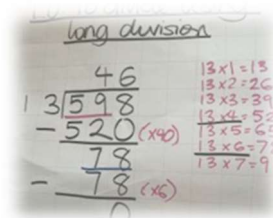 long division
46
13)598
- 520 (x40)
78
- 78 (x6)
0
13x1=13
13x2=26
13x3=39
13x4=52
13x5=6
13x6=7
13x7=9